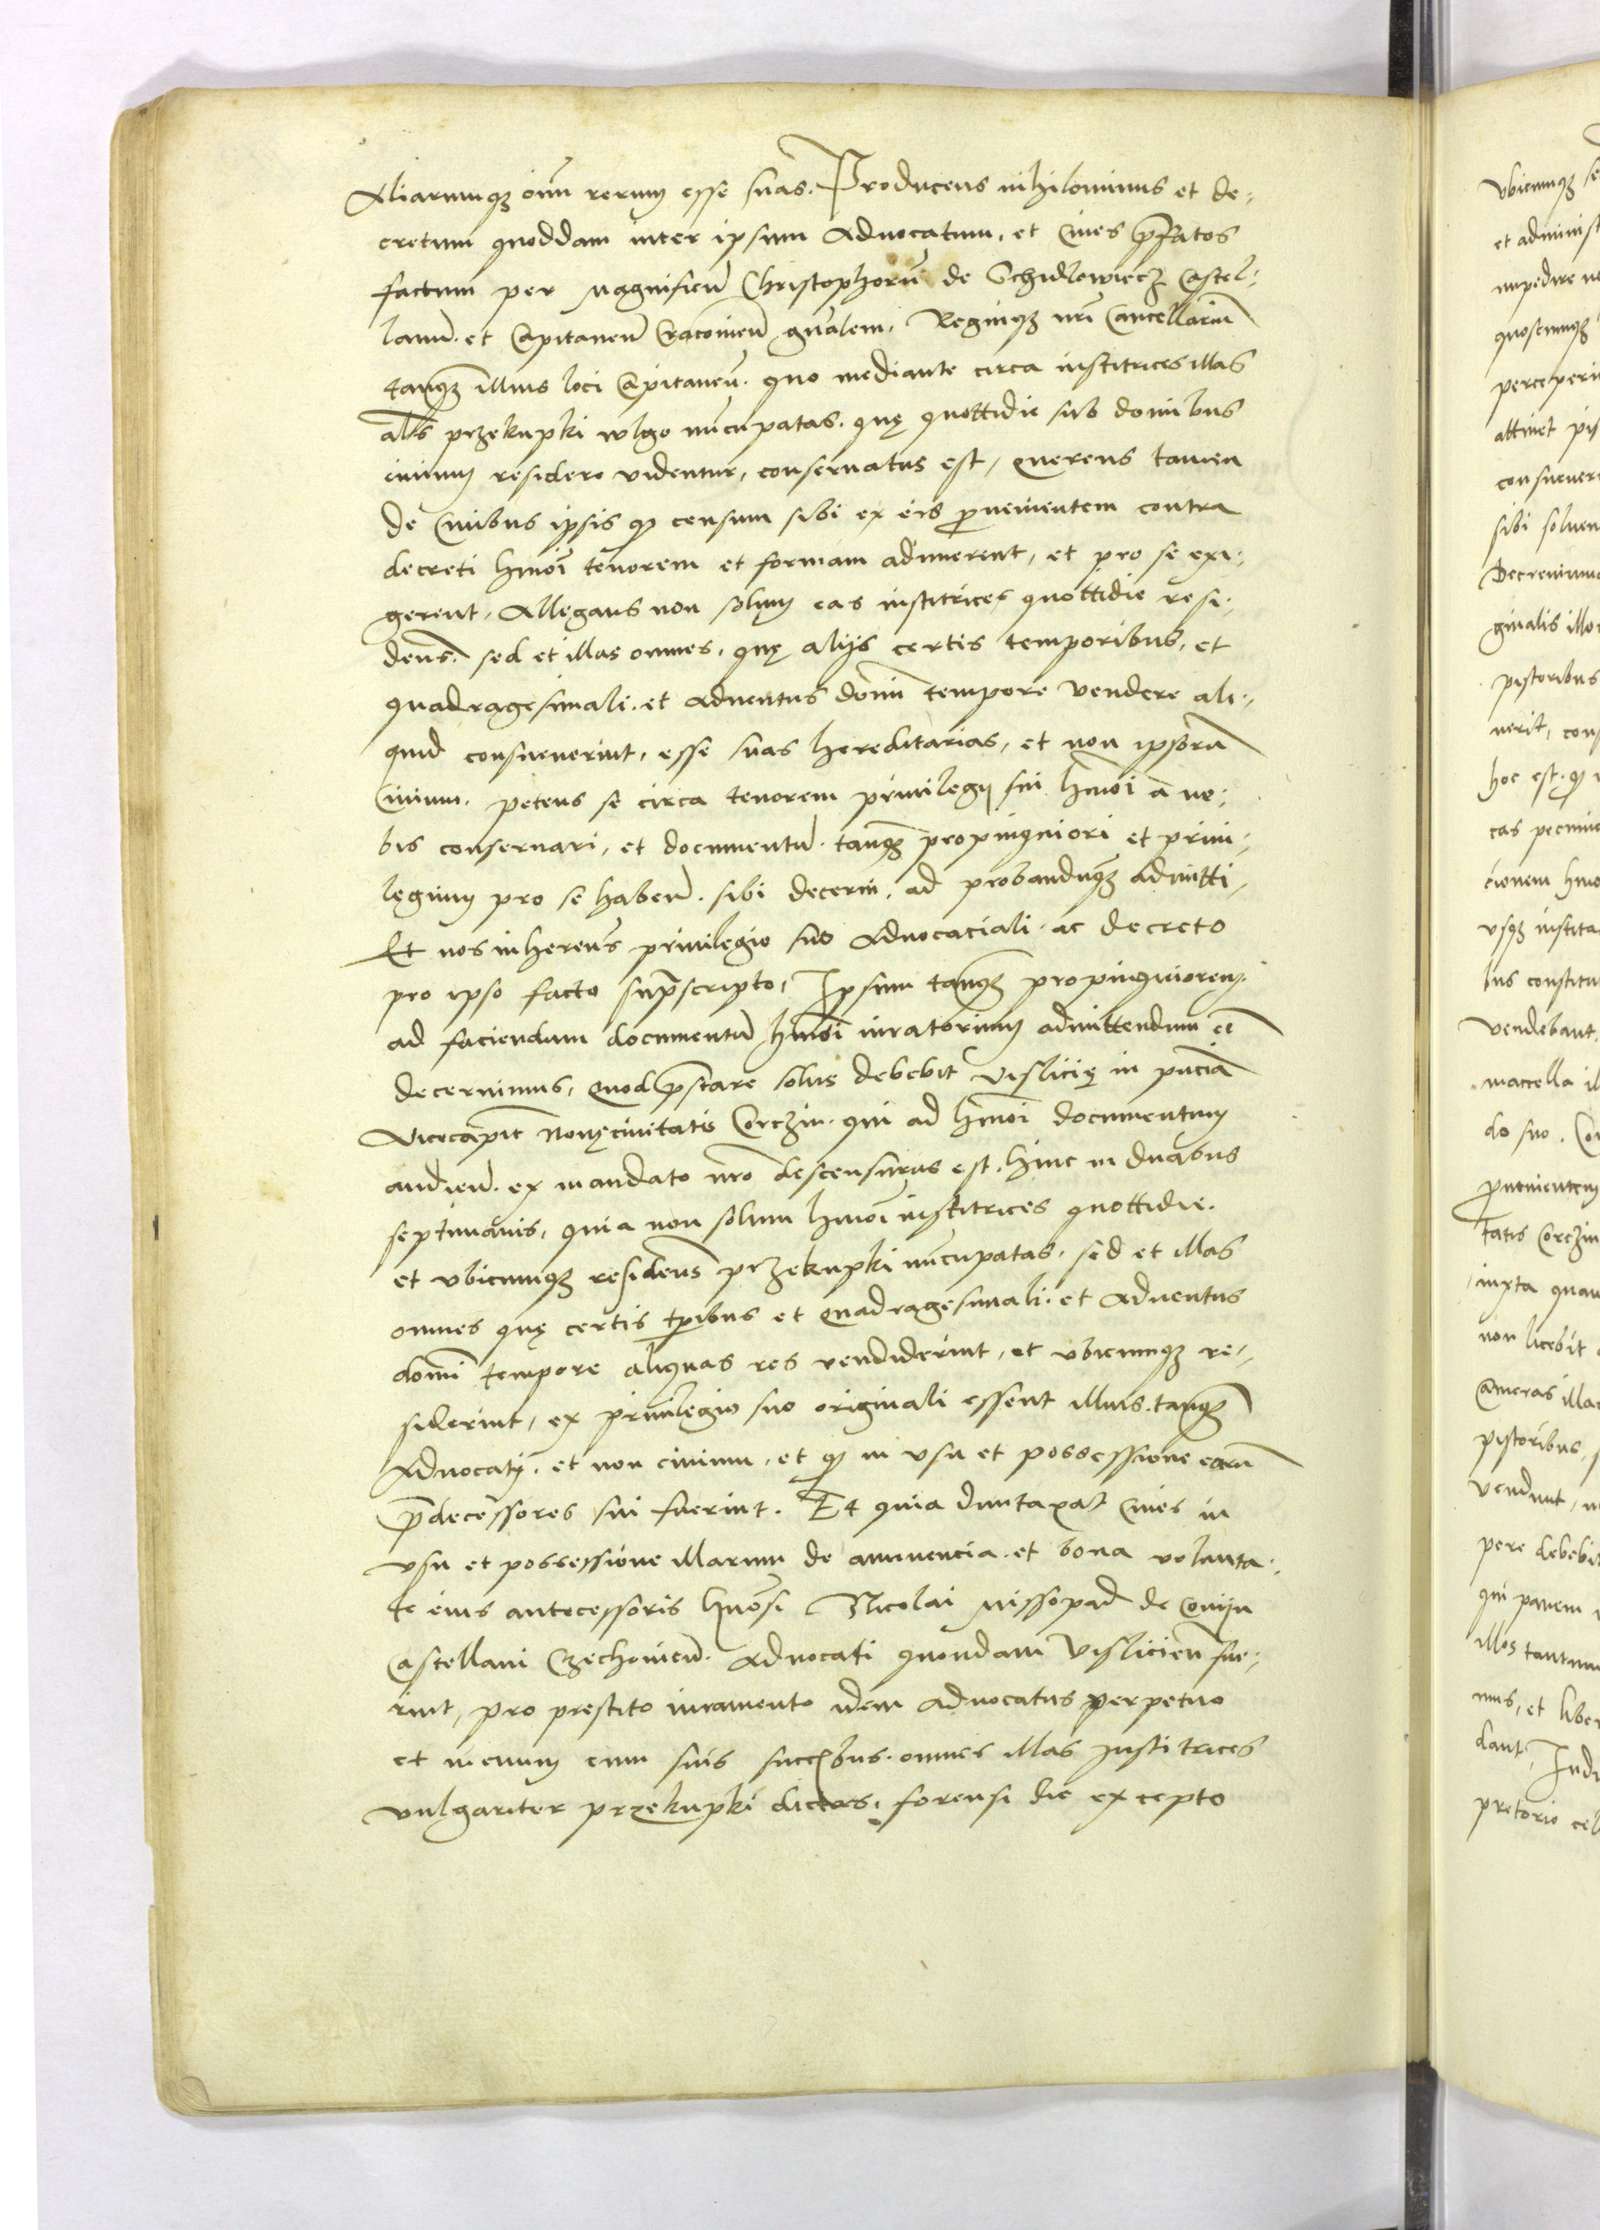 Aliarumqꝫ oīm rerum esse suas. Producens nihilominus et de-
cretum quoddam inter ipsum Advocatum, et Cives p̄fatos
factum per Magnificū Christophorū de Schidlowiecz Castel-
lanū. et Capitaneū Cracovieñ gn̄alem, Regniqꝫ nr̄i Cancellariū
tanqꝫ illius loci Capitaneū. quo mediante circa institrices illas
al̄s przekupki wlgo nūcupatas. quę quottidie sub domibus
civium residere videntur, conservatus est, Querens tamen
de Civibus ipsis qꝫ censum sibi ex eis ꝓvenientem contra
decreti hmōi tenorem et formam adimerent, et pro se exi-
gerent, Allegans non solum eas institrices quottidie resi-
den̄s. sed et illas omnes, quę alijs certis temporibus, et
quadragesimali. et adventus domī tempore vendere ali-
quid consueverint, esse suas hereditarias, et non ipsorū
Civium. petens se circa tenorem privilegij sui hmōi a no-
bis conservari, et documentū. tanqꝫ propinquiori et privi-
legium pro se habeñ. sibi decerni, ad probandumqꝫ admitti,
Et nos inheren̄s privilegio suo Advocaciali. ac decreto
pro ipso facto sup̄scripto, Ipsum tanqꝫ propinquiorem
ad faciendum documentū hmōi iuratorium admittendum eē
decernimus, Quod p̄stare solus debebit Vislicię in pn̄cia
Vicecapit̄ Novęcivitatis Corczin. qui ad hmōi documentum
audieñ. ex mandato nr̄o descensurus est. hinc in duabus
septimanis, quia non solum hmōi institrices quottidie.
et ubicumqꝫ residen̄s przekupki nūcupatas, sed et illas
omnes quę certis tp̄ribus et Quadragesimali. et Adventus
domī tempore aliquas res vendiderint, et ubicumqꝫ re-
siderint, ex privilegio suo originali essent illius. tanqꝫ
Advocati. et non civium. et qꝫ in usu et possessione earū
p̄decessores sui fuerint. Et quia duntaxat Cives in
usu et possessione illarum de annuencia. et bona volunta-
te eius antecessoris hn̄osi Nicolai Missopad de
Castellani Czechovieñ. Advocati quondam Vislicieñ fue-
rint, pro prestito iuramento idem Advocatus perpetuo
et in evum cum suis succ̄bus. omnes illas Institrices
vulgariter przekupki dictas, forensi die excepto
ubicumqꝫ se
et administ
impedire
quoscumqꝫ
perceperi
attinet pis
consuever
sibi solven
Decrevimus
ginalis illo
pistoribus
verit, cons
hoc est. qꝫ
eas pecuni
cionem hmo
usqꝫ instita
bus constitu
vendebant.
maccella il
do suo. Co
ꝓvenientem
tatis Corczin
iuxta quam
non licebit
Cameras illas
pistoribus
vendunt,
pere debebit
qui panem
illos tantum
mus, et liber
dant, Indu
pretorio